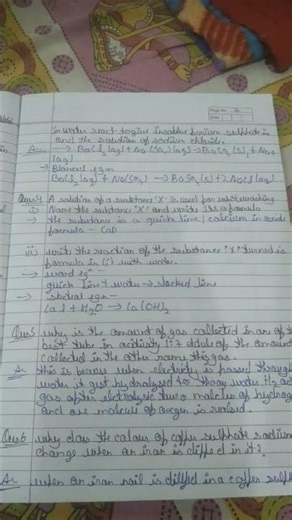 in water react to give insoluble barium sulphate
and the solution of sodium chloride.
Ans → BaCl2 (aq) + Na (SO4) (aq) → BaSO4 (s) + NaCl
(aq)
→ Blanced eqn -
BaCl2 (aq) + Na(SO4) → BaSO4 (s) + 2NaCl (aq)
Ques 4 A solution of a substance 'X' is used for white washing
i) Name the substance 'X' and write its a formula
→ the substance is a quick lime / calcium in oxide
formula - CaO
ii) write the reaction of the substance 'X' named is
formula in (i) with water.
→ word eqn -
quick lime + water → slacked lime
→
Ca + H2O → Ca(OH)2
Ques 5 why is the amount of gas collected in one of the
test tube in activity 1.7 double of the amount
collected in the other name this gas.
An this is because when electricity is passed through
water it get hydrolysed to
gas after electrolysis two molcules of hydrogen
and one molcule of oxygen is
Ques 6 why does the colour of copper sulphate
change when an iron is dipped in it?
An when an iron nail is dipped in a copper sulph